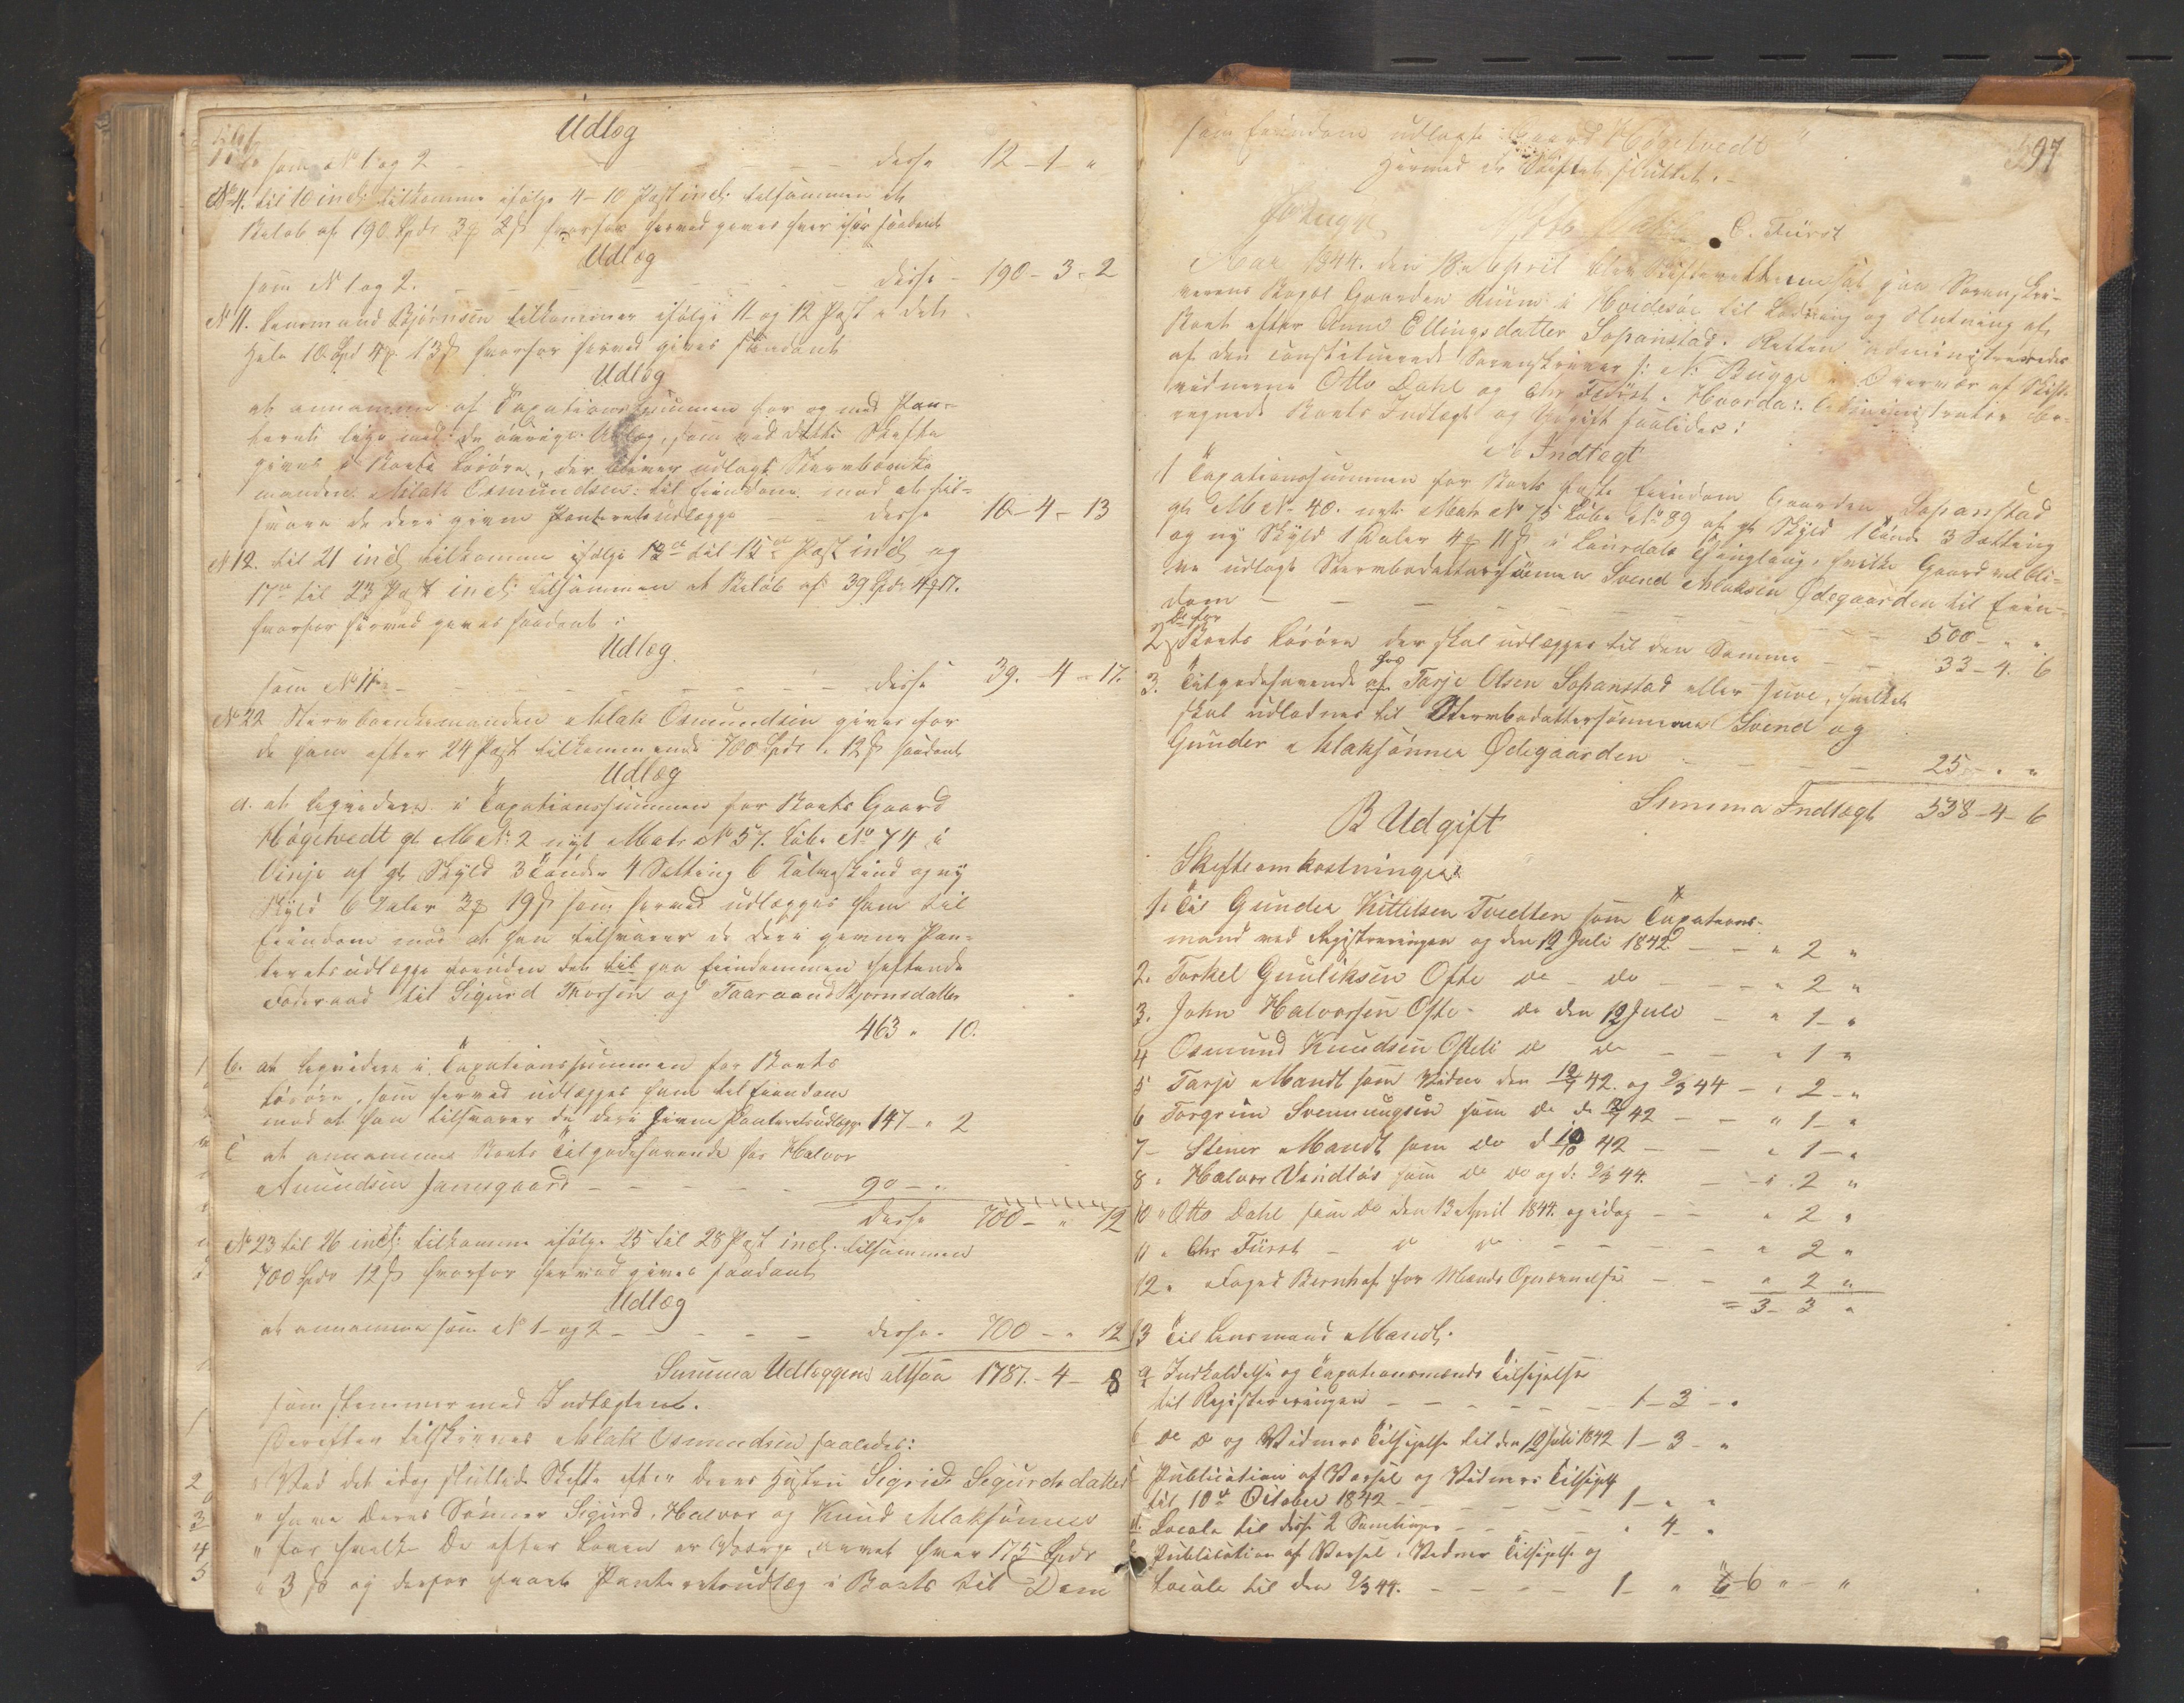 Udlæg
som No 1 og 2 - - - - disse 12 - 1 - "
No 4. til 10 incl: tilkomme ifølge 4 - 10 Post incl: tilsammen et
Beløb af 190 Spdr 3 2 hvorfor herved gives hver især saadant
Udlæg
som No 1 og 2. - - - - disse - 190 - 3 - 2
No 11. Lensmand Bjørnsen tilkommer ifølge 11 og 12 Post det
Hele 10 Spd 4 13 hvorfor herved gives saadant
Udlæg
at annamme af Taxationssummen for og med Pan-
teret lige med de øvrige Udlæg, som ved dette Skifte
gives i Boets Løsøre, der bliver udlagt Stervboenke
manden Aslak Osmundsen til Eiendom mod at til-
svare de deri givne Panteretsudlægge - - disse 10 - 4 - 13
No 12. til 21 incl tilkomme ifølge 13de til 15de Post incl og
17de til 23 Post incl: tilsammen et Beløb af 39 Spdr 4 17.
hvorfor herved gives saadant:
Udlæg.
som No 11 - - - - disse 39. - 4 - 17.
No 22 Stervboenkemanden Aslak Osmundsen gives for
de ham efter 24 Post tilkommende 700 Spdr " 12 saadant
Udlæg
a. at liqvidere i Taxationssummen for Boets Gaard
Høgetvedt gl M No 2 nyt Matr No 57. Løbe No 74 i
Vinje af gl Skyld 3 Tønder 4 Sætting 6 Kalveskind og ny
Skyld 6 Daler 3 19 som herved udlægges ham til
Eiendom mod at han tilsvarer de deri givne Pan-
teretsudlægge foruden det til paa Eiendommen heftende
Føderaad til Sigurd Thorsen og Taaraand Bjørnsdatter
463 " 10.
b. at liqvidere i Taxationssummen for Boets
Løsøre, som herved udlægges ham til Eiendom
mod at han tilsvarer de deri givne Panteretsudlægge 147 - " 2
c at annamme Boets Tilgodehavende hos Halvor
Amundsen Jamsgaard - - - - - 90 - "
disse 700 - " 12
No 23 til 26 incl: tilkomme ifølge 25 til 28 Post incl. tilsammen
700 Spdr 12 hvorfor herved gives saadant
Udlæg
at annamme som No 1 - og 2 - - - - disse - 700 - " 12
Summa Udlæggene altsaa 1787. - 4 - 8
som stemmer med Indtægten.
Derefter tilskrives Aslak Osmundsen saaledes:
" Ved det idag sluttede Skifte efter Deres Hustru Sigrid Sigurdsdatter
" have Deres Sønner Sigurd, Halvor og Knud Aslaksønner
" for hvilke De efter Loven er Værge, arvet hver 175 Spdr
" 3 og derfor faaet Panteretsudlæg i Boets til Dem
397
som Eiendom udlagte Gaard Høgetvedt "
Hermed er Skiftet sluttet. -
Bugge Otto Dahl C. Fürst
Aar 1844. den 18de April blev Skifteretten sat paa Sorenskri-
verens Bopæl Gaarden Ruum i Hvidesøe til Lodning og Slutning af
Boet efter Anne Ellingsdatter Sopanstad. Retten administreredes
af den constituerede Sorenskriver J: N: Bugge i Overvær af Skifte-
vidnerne Otto Dahl og Chr Fürst. Hvorda: Administrator be-
regnede Boets Indtægt og Udgift saaledes:
A Indtægt
1 Taxationssummen for Boets faste Eiendom Gaarden Sopanstad
gl M No 40. nyt Matr No 75 Løbe No 89 af gl Skyld 1 Tønde 3 Sætting
og ny Skyld 1 Daler 4 11 i Laurdals Thinglaug, hvilke Gaard vil bli-
ve udlagt Stervbodattersønnen Svend Aslaksen Ødegaarden til Eien-
dom - - - - - 500 - " "
2 Do for Boets Løsøre der skal udlægges til den Samme - - 33 - 4. 6
3. Tilgodehavende hos Tarje Olsen Sopanstad eller Juve, hvilket
skal udlodnes til Stervbodattersønnerne Svend og
Gunder Aslaksønner Ødegaarden - - - - 25 - " "
Summa Indtægt 538 - 4 - 6
B Udgift
Skifteomkostninger.
1. Til Gunder Kittelsen Tvedten som Taxations-
mand ved Registreringen og den 12 Juli 1842. - - " 2 "
2. Torkel Gunliksen Ofte do - do - - - " 2 "
3. John Halvorsen Ofte - do den 12 Juli - " 1 - "
4 Osmund Knudsen Ofteli do do - - " 1 "
5 Tarje Mandt som Vidne den 12/7 42. og 9/3 44 - " 2 - "
6 Torgrim Svenningsen som do do 12/7 42 - - " 1 - "
7 - Stener Mandt som do d 10/10 42 - - " 1 - "
8 " Halvor Vindlaus som do do og d: 9/3 44. - " 2 "
10 " Otto Dahl som do den 13 April 1844. og idag - - " 2 "
11 " Chr Fürst - do do - - - - " 2 "
12 " Foged Bernhoft for Mænds Opnævnelse - - " 2 "
= 3 - 3 "
13 Til Lensmand Mandt.
a Indkaldelse og Taxationsmænds Tilsigelse
til Registreringen - - - - - 1 - 3 - "
b do do og Vidners Tilsigelse til den 12 Juli 1842 1 - 3 - "
c Publication af Varsel og Vidners Tilsigelse
til 10de October 1842 - - - - - 1 - " "
d. Locale til disse 2 Samlinger - - - " 4 - "
e Publication af Varsel, Vidner Tilsigelse og
Locale til den 9/3 44. - - - - 1 - " " 6 " - "